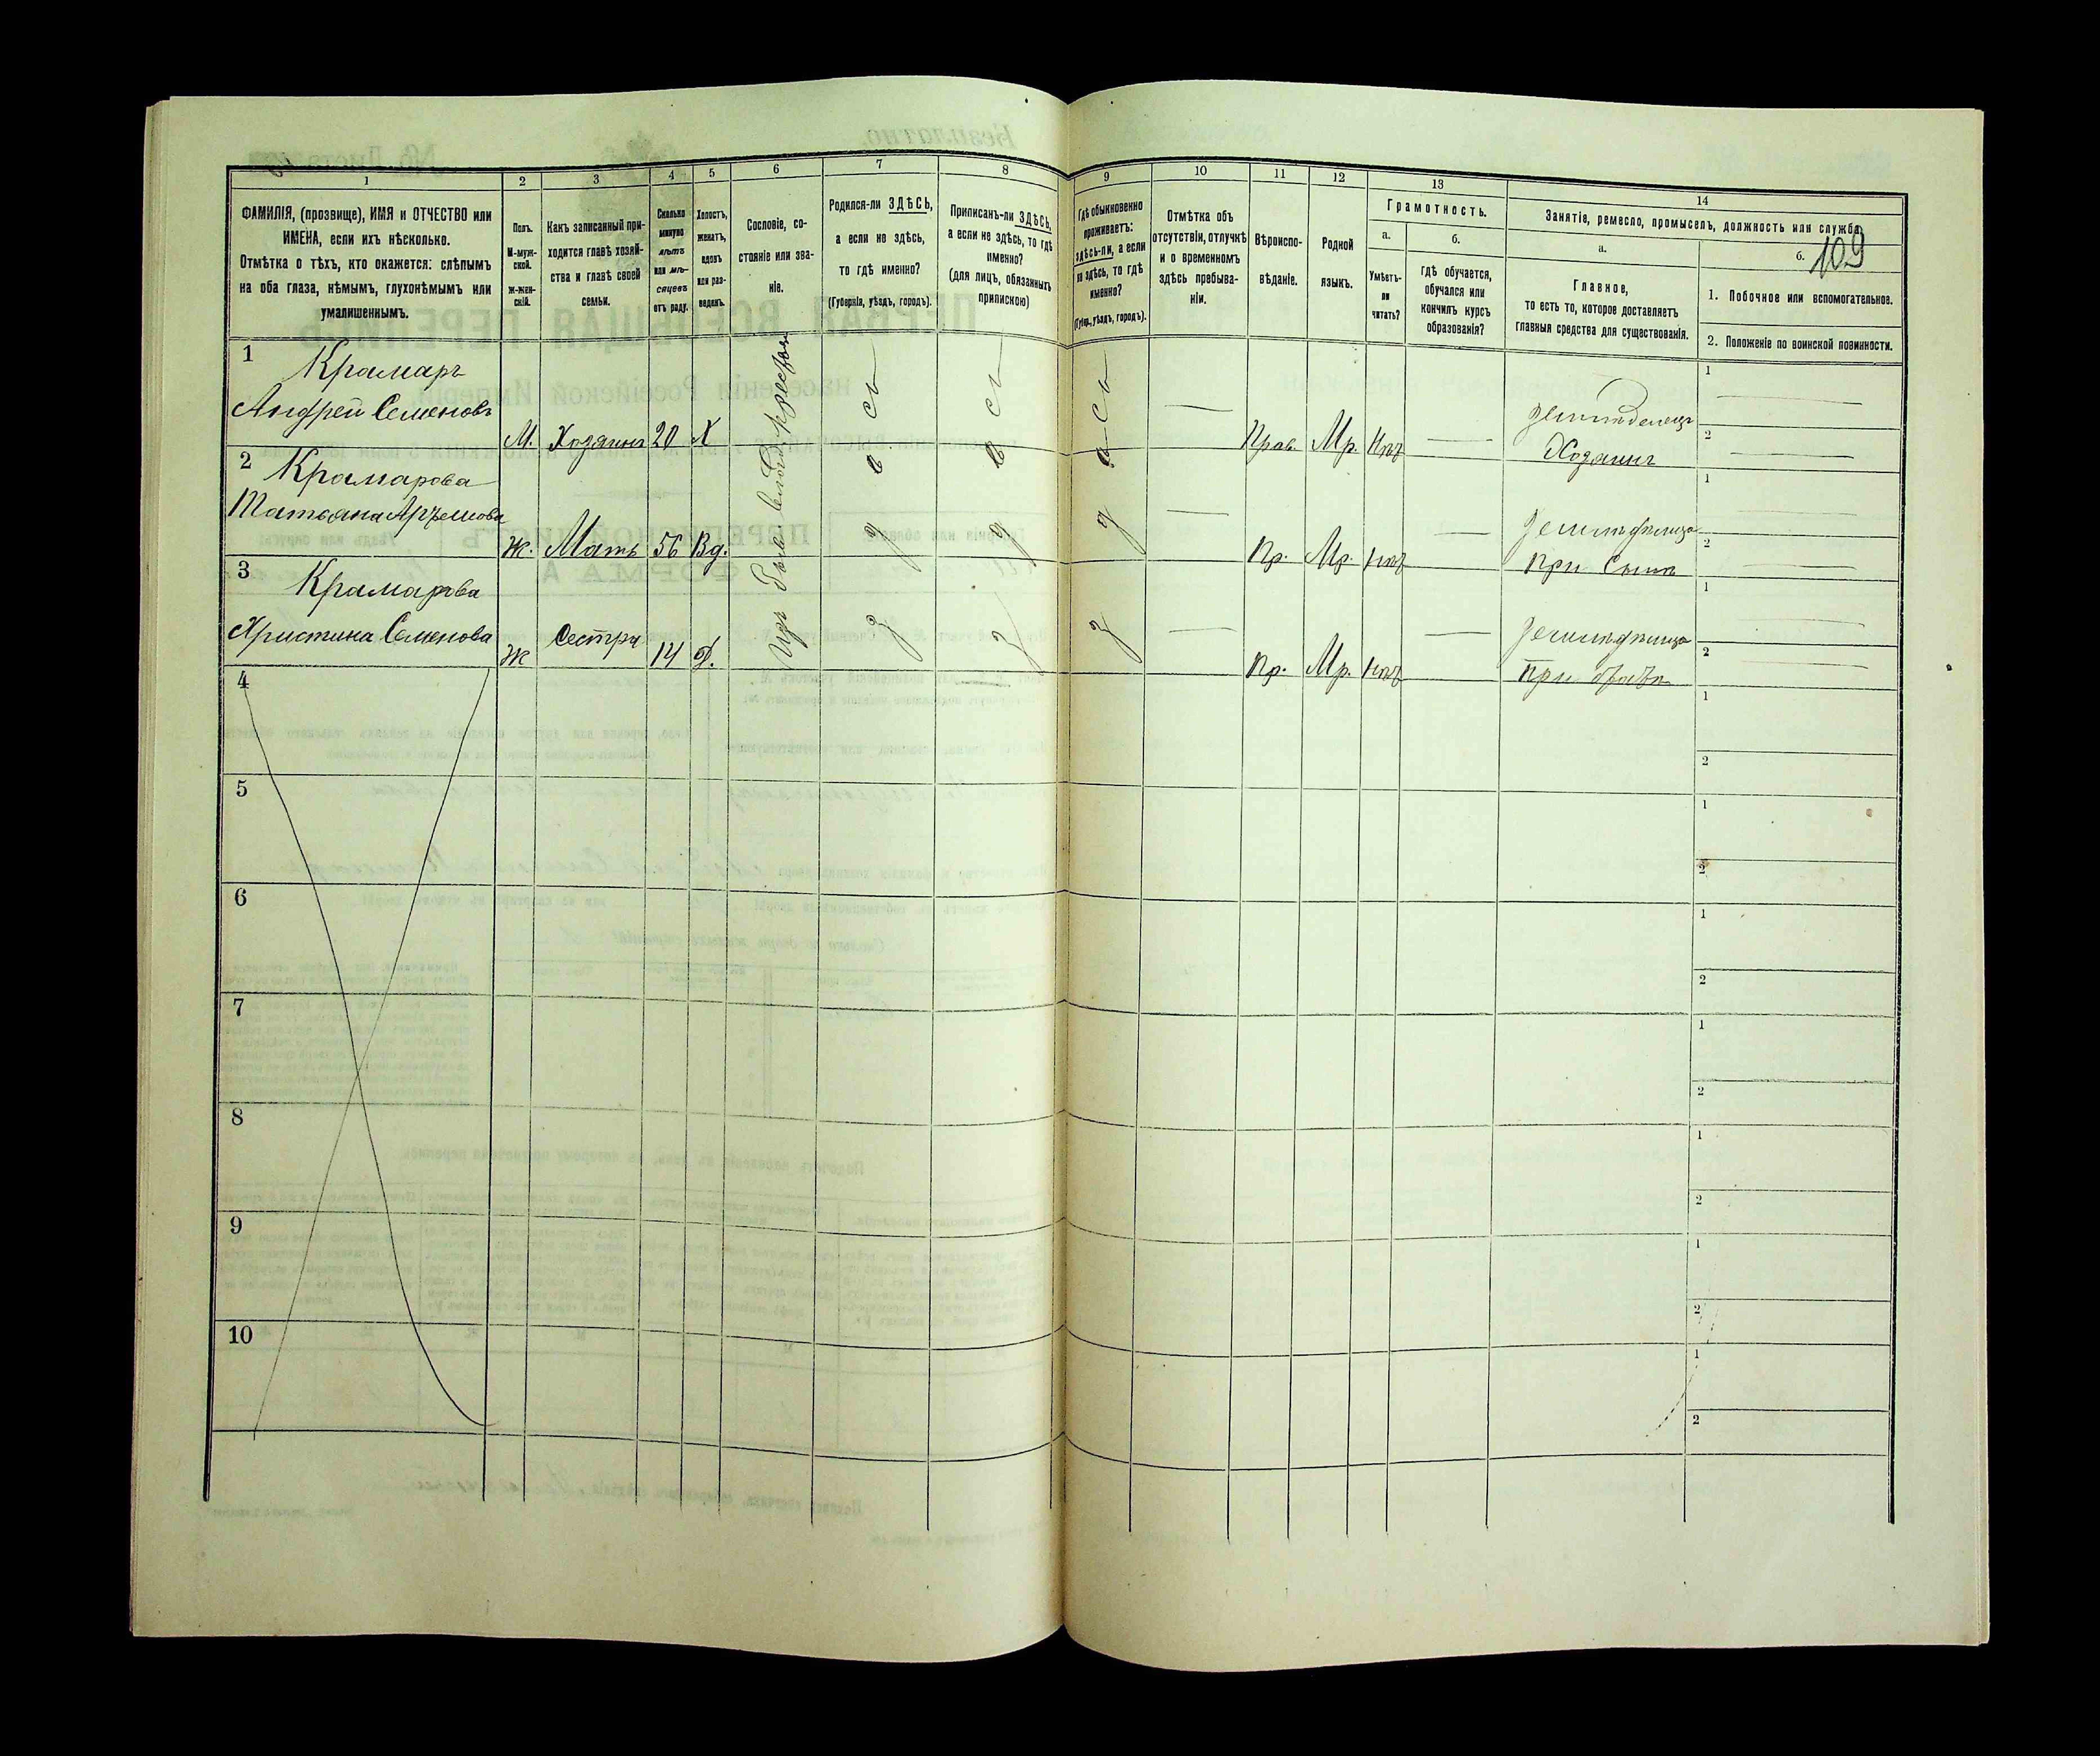 109
1
2
3
4
5
6
7
8
9
10
11
12
13
14
ФАМИЛІЯ, (прозвище), ИМЯ и ОТЧЕСТВО или
ИМЕНА, если ихъ нѣсколько.
Отмѣтка о тѣхъ, кто окажется: слѣпымъ
на оба глаза, нѣмымъ, глухонѣмымъ или
умалишеннымъ.
Полъ.
М-муж-
ской.
Ж-жен-
скій.
Какъ записанный при-
ходится главѣ хозяй-
ства и главѣ своей
семьи.
Сколько
минуло
лѣтъ
или мѣ-
сяцевъ
отъ роду.
Холостъ,
женатъ,
вдовъ
или раз-
веденъ.
Сословіе, со-
стояніе или зва-
ніе.
Родился-ли ЗДѢСЬ,
а если не здѣсь,
то гдѣ именно?
(Губернія, уѣздъ, городъ).
Приписанъ-ли ЗДѢСЬ,
а если не здѣсь, то гдѣ
именно?
(для лицъ, обязанныхъ
припискою)
Гдѣ обыкновенно
проживаетъ:
здѣсь-ли, а если
не здѣсь, то гдѣ
именно?
(Губерн., уѣздъ, городъ).
Отмѣтка объ
отсутствіи, отлучкѣ
и о временномъ
здѣсь пребыва-
ніи.
Вѣроиспо-
вѣданіе.
Родной
языкъ.
Грамотность.
а.
Умѣетъ-
ли
читать?
б.
Гдѣ обучается,
обучался или
кончилъ курсъ
образованія?
Занятіе, ремесло, промыселъ, должность или служба.
а.
Главное,
то есть то, которое доставляетъ
главныя средства для существованія.
б.
1. Побочное или вспомогательное.
2. Положеніе по воинской повинности.
1
Крамаръ
Андрей Семеновъ
М. Хозяинъ 20 Х
Прав. Мр. Нѣтъ
земледелецъ
Хозяинъ
1
2
2
Крамарова
Татьяна
Ж. Мать 56 Вд.
Пр. Мр. Нѣтъ
при сынѣ
1
2
3
Крамарова
Христина Семенова
Ж Сестра 14 Д.
Пр. Мр. Нѣтъ
при братѣ
1
2
4
1
2
5
1
2
6
1
2
7
1
2
8
1
2
9
1
2
10
1
2